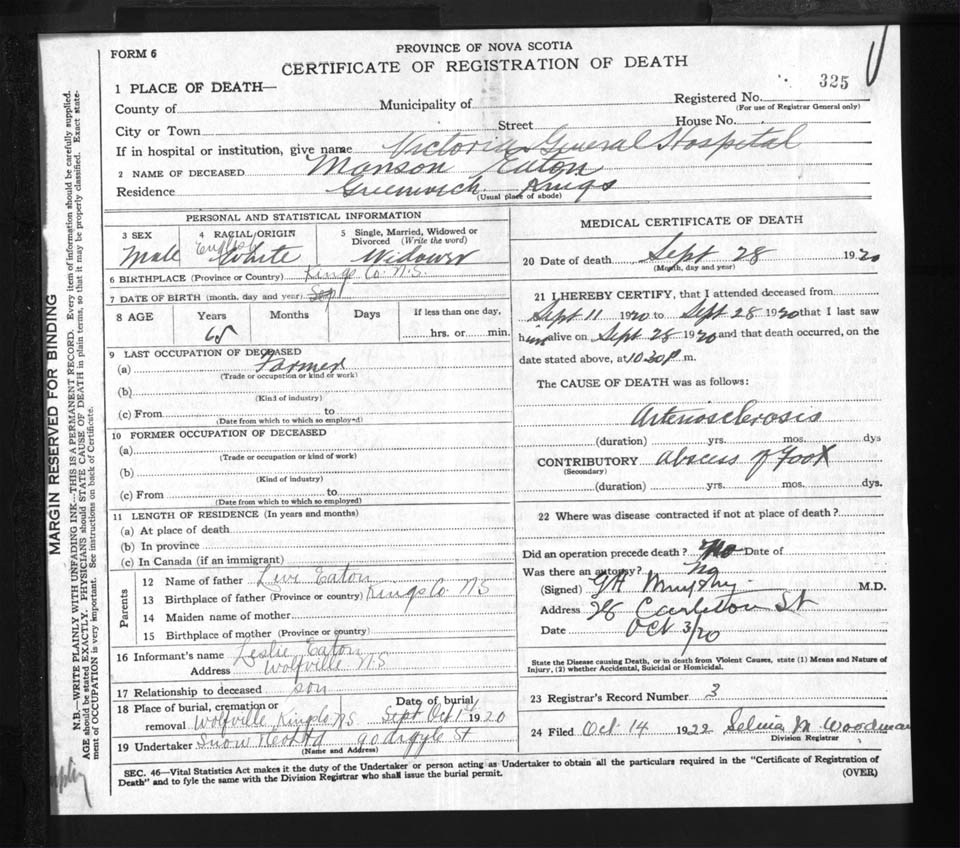 FORM 6
PROVINCE OF NOVA SCOTIA
CERTIFICATE OF REGISTRATION OF DEATH
1 PLACE OF DEATH—
325
County of Municipality of Registered No.
(For use of Registrar General only)
City or Town Street House No.
If in hospital or institution, give name Victoria General Hospital
2 NAME OF DECEASED Manson Eaton
Residence Greenwich Kings
(Usual place of abode)
PERSONAL AND STATISTICAL INFORMATION
3 SEX 4 RACIAL ORIGIN 5 Single, Married, Widowed or Divorced (Write the word)
Male English White Widower
6 BIRTHPLACE (Province or Country) Kings Co. N.S.
7 DATE OF BIRTH (month, day and year) Sept
8 AGE Years Months Days If less than one day,
65 hrs. or min.
9 LAST OCCUPATION OF DECEASED
(a) Farmer
(Trade or occupation or kind or work)
(b)
(Kind of industry)
(c) From to
(Date from which to which so employed)
10 FORMER OCCUPATION OF DECEASED
(a)
(Trade or occupation or kind of work)
(b)
(Kind of industry)
(c) From to
(Date from which to which so employed)
11 LENGTH OF RESIDENCE (In years and months)
(a) At place of death
(b) In province
(c) In Canada (if an immigrant)
Parents
12 Name of father Levi Eaton
13 Birthplace of father (Province or country) Kings Co. NS
14 Maiden name of mother
15 Birthplace of mother (Province or country)
16 Informant's name Leslie Eaton
Address Wolfville N.S
17 Relationship to deceased son
18 Place of burial, cremation or removal Wolfville Kings Co NS Date of burial Sept Oct 1st 1920
19 Undertaker Snow & Co Ltd 90 Argyle St
(Name and Address)
MEDICAL CERTIFICATE OF DEATH
20 Date of death Sept 28 1920
(Month, day and year)
21 I HEREBY CERTIFY, that I attended deceased from
Sept 11 1920 to Sept 28 1920 that I last saw
him alive on Sept 28 1920 and that death occurred, on the
date stated above, at 10 30 P. m.
The CAUSE OF DEATH was as follows:
Arteriosclerosis
(duration) yrs. mos. dys
CONTRIBUTORY abscess of Foot
(Secondary)
(duration) yrs. mos. dys.
22 Where was disease contracted if not at place of death?
Did an operation precede death? No Date of
Was there an autopsy? No
(Signed) GH Murphy M.D.
Address Carleton St
Date Oct 3/20
State the Disease causing Death, or in death from Violent Causes, state (1) Means and Nature of
Injury, (2) whether Accidental, Suicidal or Homicidal.
23 Registrar's Record Number 3
24 Filed Oct 14 1922 M Woodman
Division Registrar
SEC. 46—Vital Statistics Act makes it the duty of the Undertaker or person acting as Undertaker to obtain all the particulars required in the "Certificate of Registration of
Death" and to fyle the same with the Division Registrar who shall issue the burial permit.
(OVER)
MARGIN RESERVED FOR BINDING
N.B.—WRITE PLAINLY WITH UNFADING INK—THIS IS A PERMANENT RECORD. Every item of information should be carefully supplied.
AGE should be stated EXACTLY. PHYSICIANS should STATE CAUSE OF DEATH in plain terms, so that it may be properly classified. Exact state-
ment of OCCUPATION is very important. See instructions on back of Certificate.